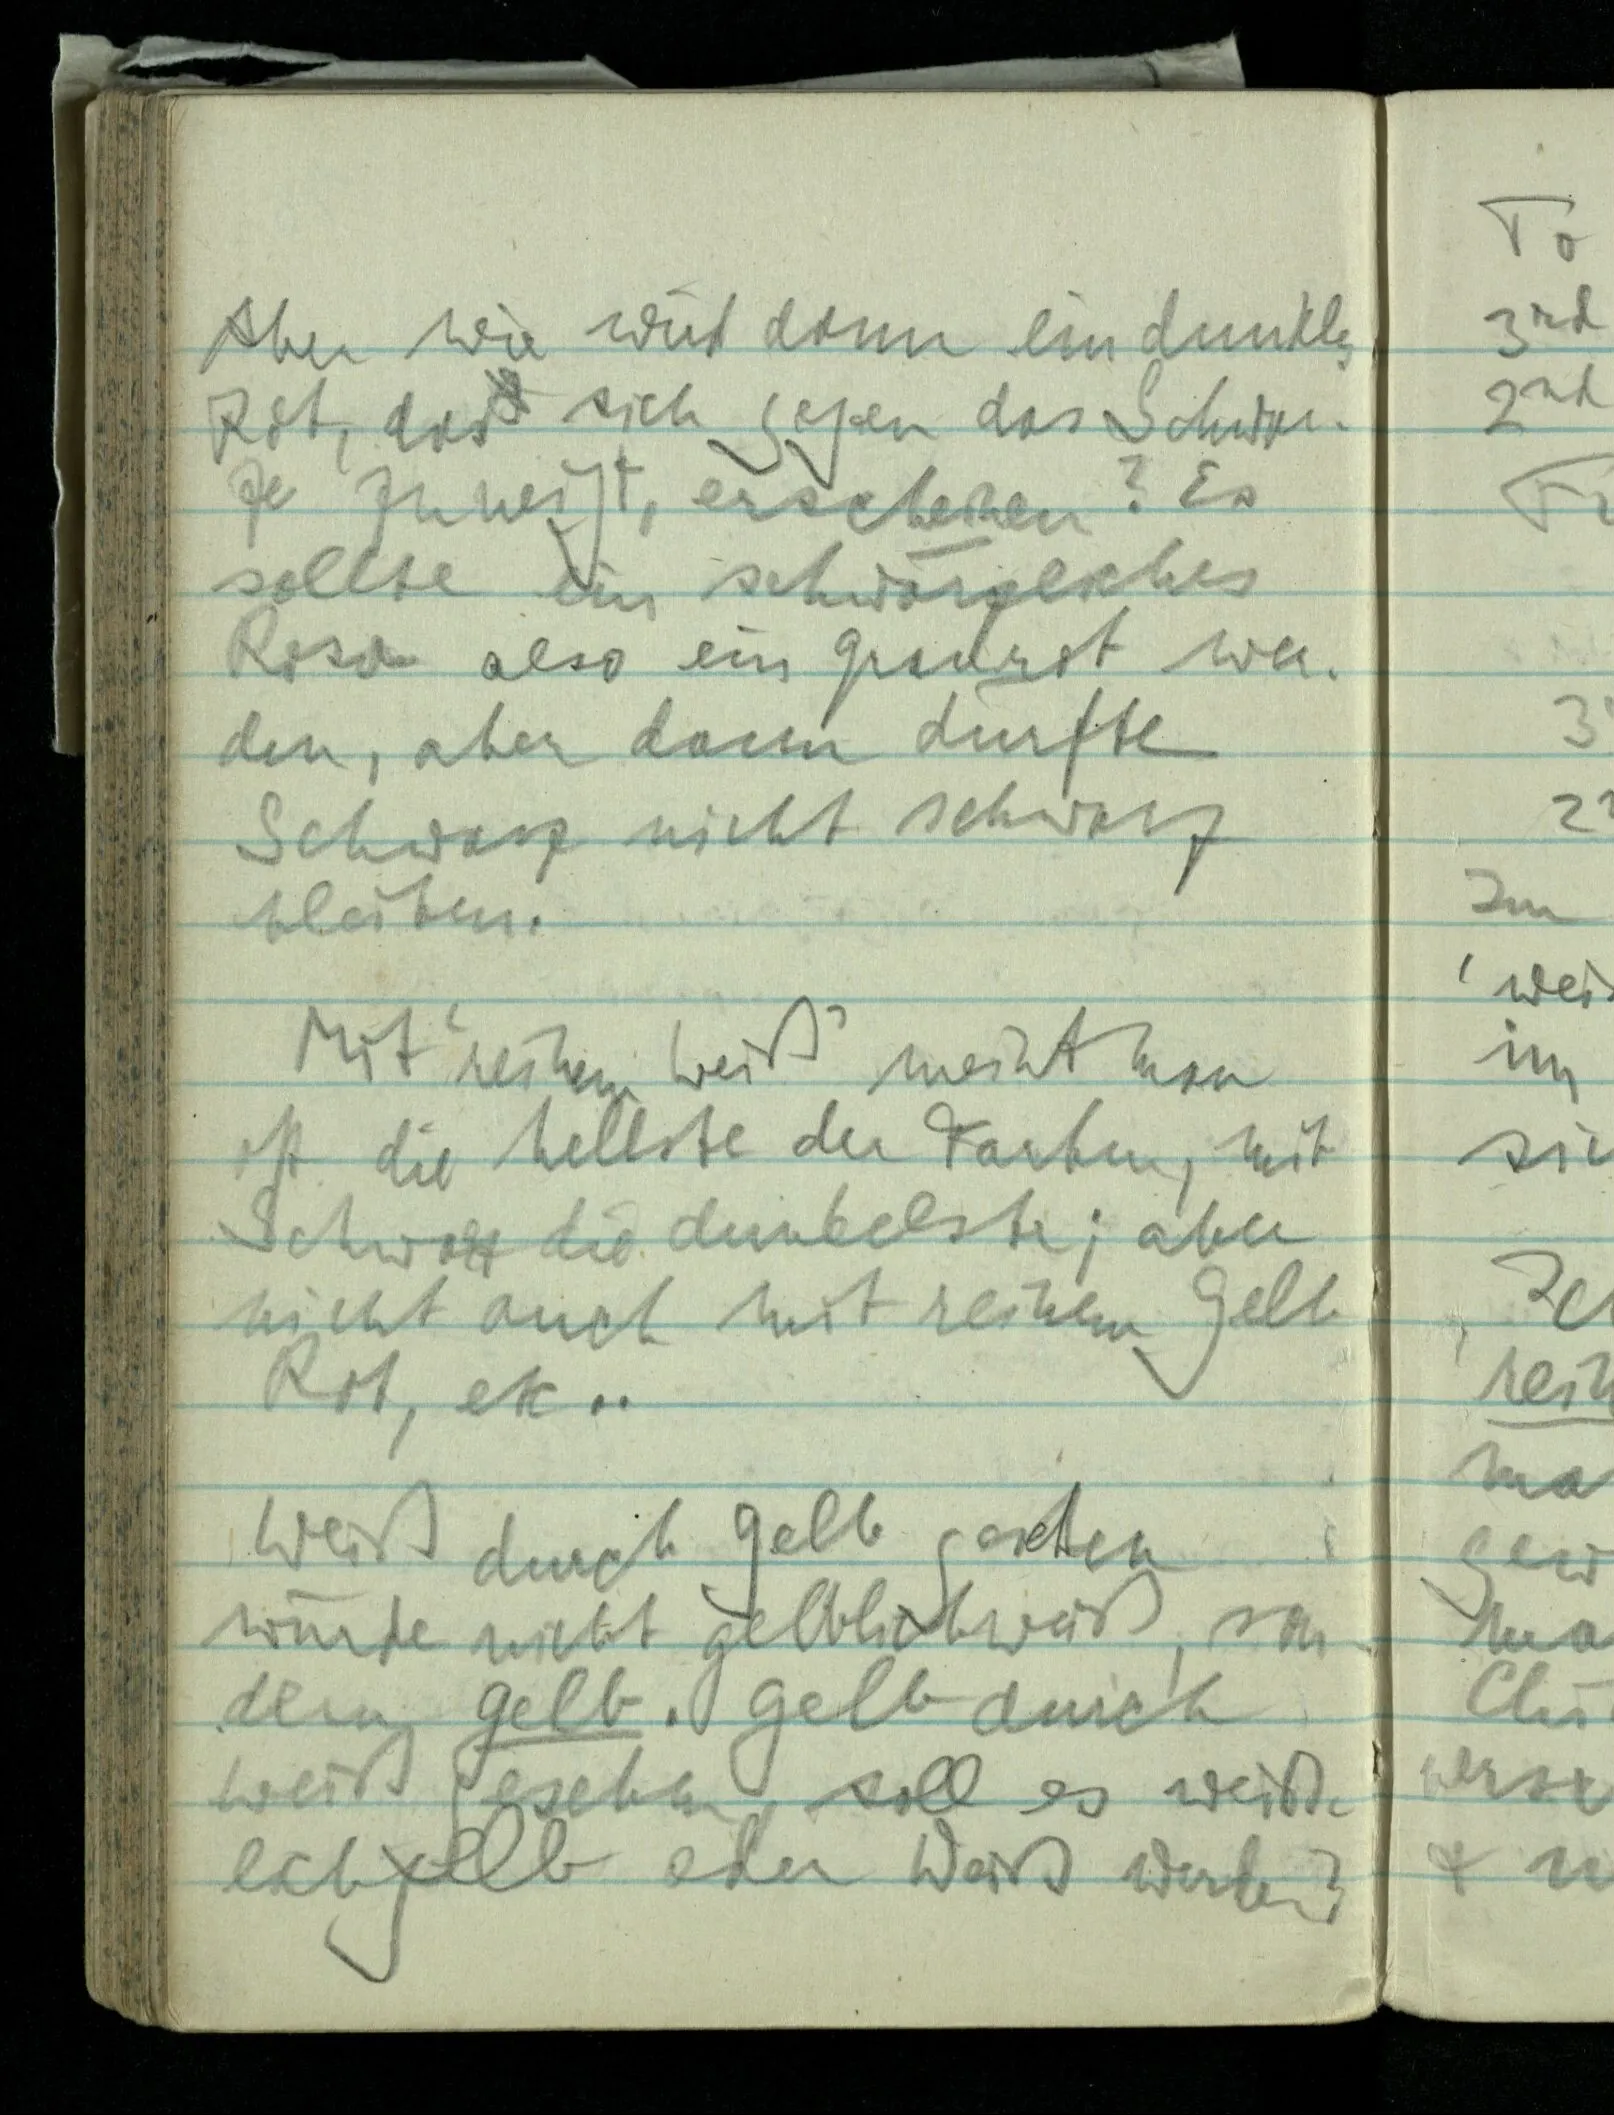 Aber wie wird dann ein dunkles
Rot, das sich gegen das Schwar-
ze zuneigt, erscheinen? Es
sollte ein schwärzliches
Rosa also ein Graurot wer-
den, aber dann dürfte
Schwarz nicht schwarz
bleiben.
Mit 'reinem Weiß' meint man
oft die hellste der Farben, mit
Schwarz die dunkelste; aber
nicht auch mit reinem Gelb
Rot, etc..
Weiß durch Gelb gesehen
würde nicht gelblichweiß, son-
dern gelb. Gelb durch
weiß gesehen, soll es weiß-
lichgelb oder Weiß werden?
To
3rd
2nd
Im
'weiß
im